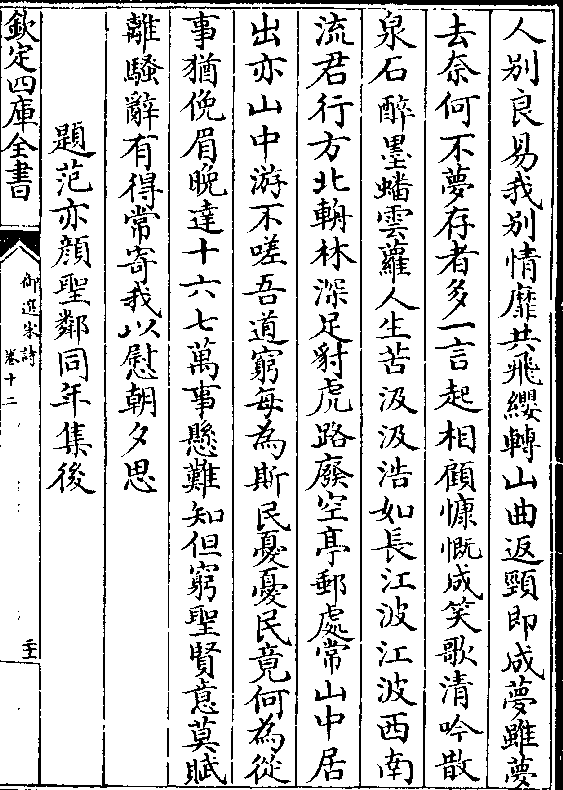 人別良易我別情靡共飛纓轉山曲返顋即成夢雖夢
去奈何不夢存者多一言起相顧慷慨成笑歌清吟散
泉石醉墨蟠雲蘿人生苦汲汲浩如長江波江波西南
流君行方北輈林深足豺虎路廢空亭郵處常山中居
出亦山中游不嗟吾道窮每為斯民憂憂民竟何為從
事猶俛眉晚達十六七萬事懸難知但窮聖賢意莫賦
離騷辭有得常寄我以慰朝夕思
題范亦顔聖鄰同年集後
欽定四庫全書
御選宋詩
卷十二